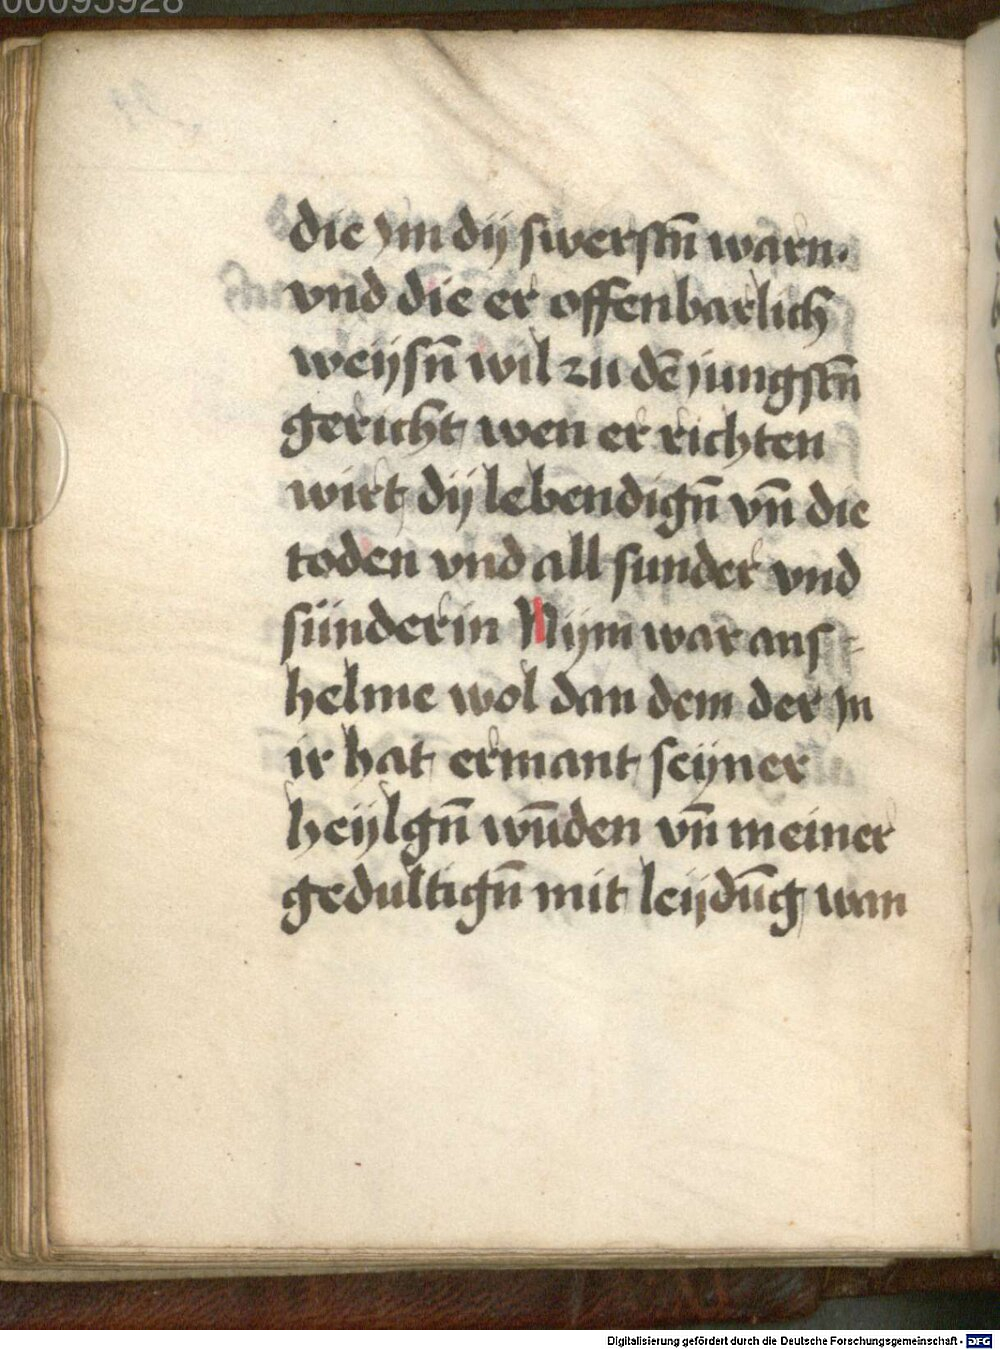 00095928
die ym dij swerstn̄ warn·
vnd die er offenbarlich
weijsn̄ wil zu dē jungstn̄
gericht wen er richten
wirt dij lebendign̄ vn̄ die
toden vnd all sunder vnd
sünderin Nijm war ans
helme wol dan dem der yn
ir hat ermant seijner
heijlgn̄ wūden vn̄ meiner
gedultign̄ mit leijdūg wan
Digitalisierung gefördert durch die Deutsche Forschungsgemeinschaft - DFG